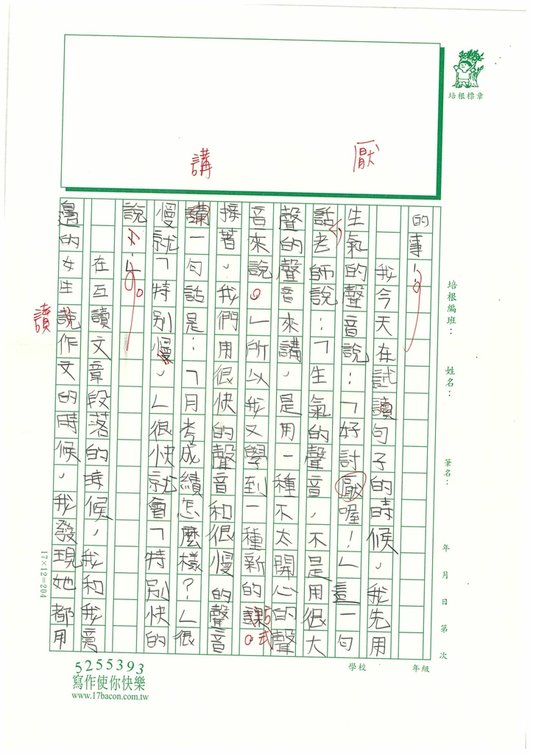 培根標章
厭
講
培根編班：
姓名：
筆名：
年 月 日 第 次
學校
年級
的事
我今天在試讀句子的時候，我先用
生氣的聲音說：「好討厭喔！」這一句
話，老師說：「生氣的聲音，不是用很大
聲的聲音來講，是用一種不太開心的聲
音來說。」所以我又學到一種新的課
接著，我們用很快的聲音和很慢的聲音
講一句話是：「月考成績怎麼樣？」很
慢就「特別慢，」很快就會「特別快的
說
在互讀文章段落的時候，我和我旁
邊的女生說作文的時候，我發現她都用
讀
17×12=204
5255393
寫作使你快樂
www.17bacon.com.tw